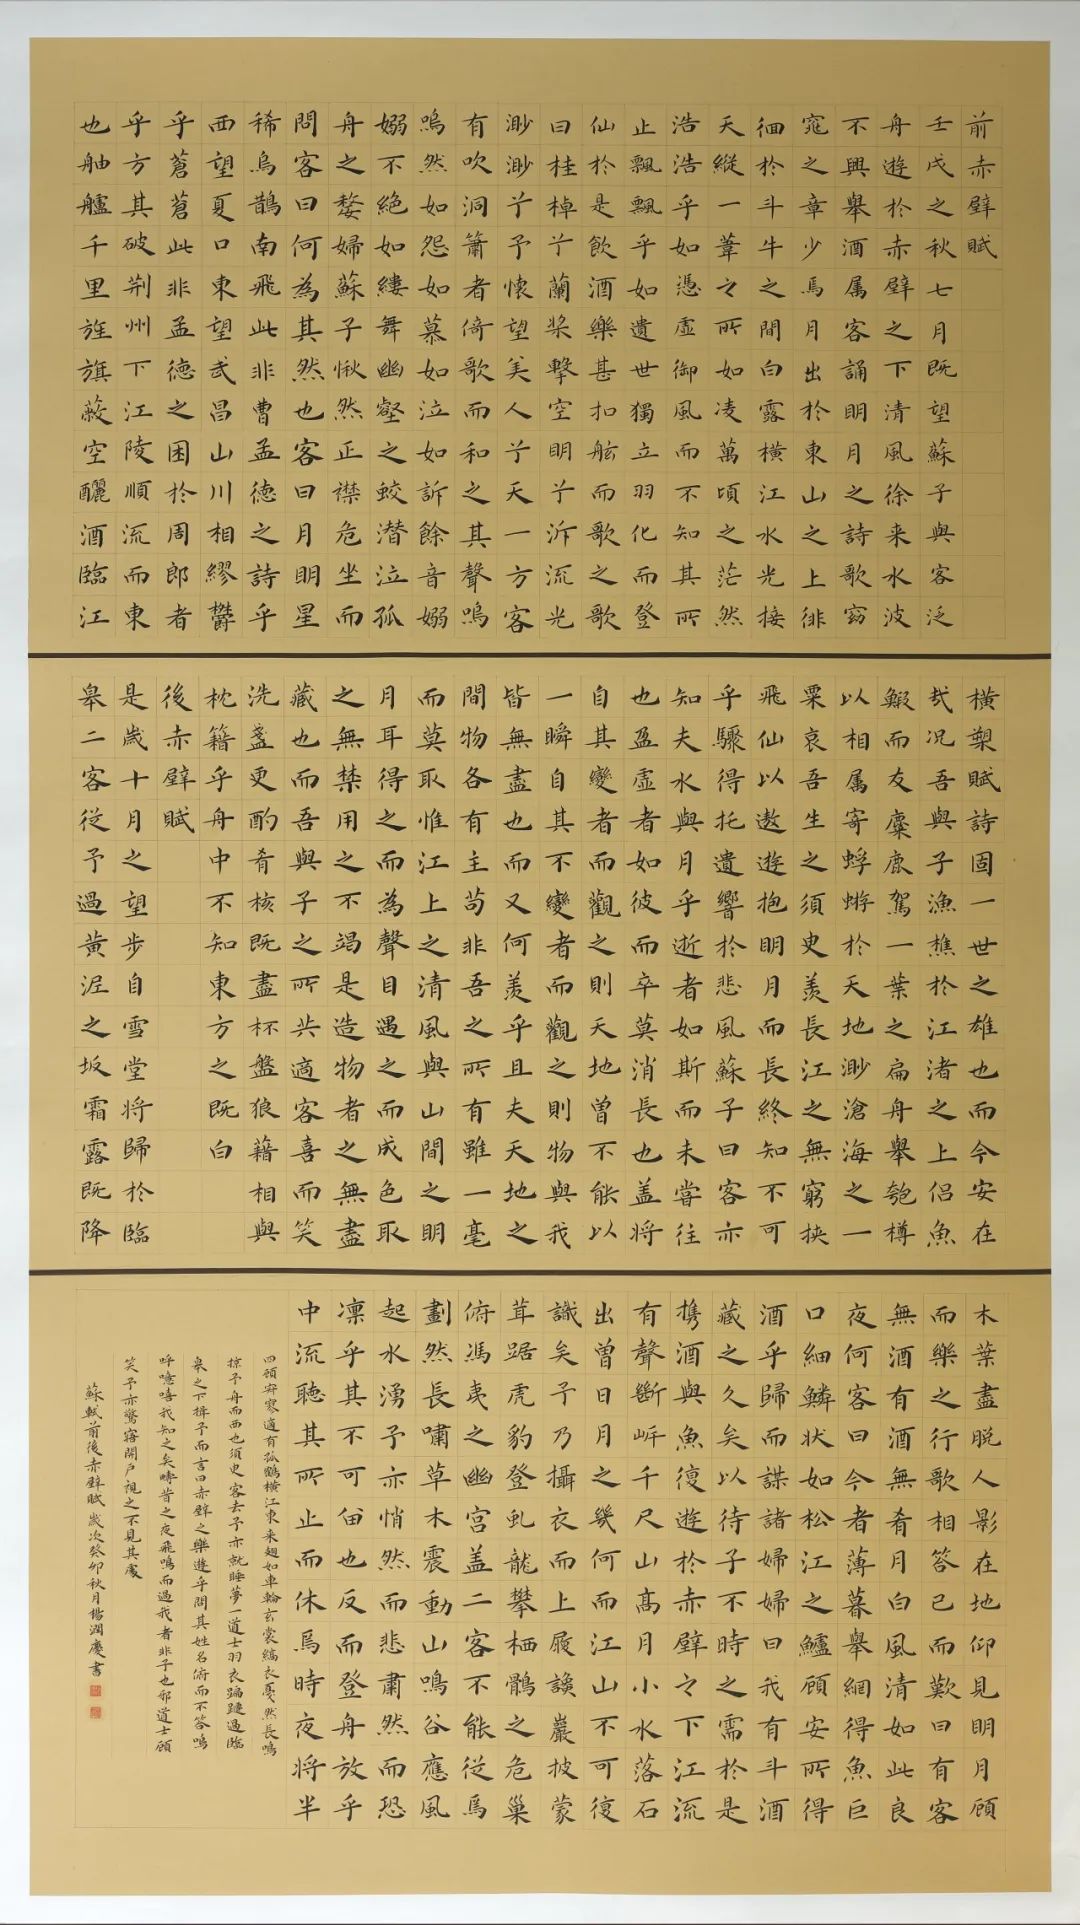 前赤壁賦
壬戌之秋七月既望蘇子與客泛
舟遊於赤壁之下清風徐来水波
不興舉酒属客誦明月之詩歌窈
窕之章少焉月出於東山之上徘
徊於斗牛之間白露横江水光接
天縱一葦之所如凌萬頃之茫然
浩浩乎如憑虛御風而不知其所
止飄飄乎如遺世獨立羽化而登
仙於是飲酒樂甚扣舷而歌之歌
曰桂棹兮蘭槳擊空明兮泝流光
渺渺兮予懷望美人兮天一方客
有吹洞簫者倚歌而和之其聲嗚
嗚然如怨如慕如泣如訴餘音嫋
嫋不絕如縷舞幽壑之蛟潜泣孤
舟之嫠婦蘇子愀然正襟危坐而
問客曰何為其然也客曰月明星
稀烏鵲南飛此非曹孟德之詩乎
西望夏口東望武昌山川相繆鬱
乎蒼蒼此非孟德之困於周郎者
乎方其破荆州下江陵順流而東
也舳艫千里旌旗蔽空釃酒臨江
橫槊賦詩固一世之雄也而今安在
哉况吾與子漁樵於江渚之上侣魚
鰕而友麋鹿駕一葉之扁舟舉匏樽
以相属寄蜉蝣於天地渺滄海之一
粟哀吾生之須臾羨長江之無窮挾
飛仙以遨遊抱明月而長終知不可
乎驟得托遺響於悲風蘇子曰客亦
知夫水與月乎逝者如斯而未嘗往
也盈虛者如彼而卒莫消長也盖将
自其變者而觀之則天地曾不能以
一瞬自其不變者而觀之則物與我
皆無盡也而又何羨乎且夫天地之
間物各有主苟非吾之所有雖一毫
而莫取惟江上之清風與山間之明
月耳得之而為聲目遇之而成色取
之無禁用之不竭是造物者之無盡
藏也而吾與子之所共適客喜而笑
洗盞更酌肴核既盡杯盤狼藉相與
枕籍乎舟中不知東方之既白
後赤壁賦
是歲十月之望步自雪堂将歸於臨
皋二客從予過黄泥之坂霜露既降
木葉盡脱人影在地仰見明月顧
而樂之行歌相答已而歎曰有客
無酒有酒無肴月白風清如此良
夜何客曰今者薄暮舉網得魚巨
口細鱗状如松江之鱸顧安所得
酒乎歸而謀諸婦婦曰我有斗酒
藏之久矣以待子不時之需於是
携酒與魚復遊於赤壁之下江流
有聲斷岸千尺山高月小水落石
出曾日月之幾何而江山不可復
識矣予乃攝衣而上履讒巖披蒙
茸踞虎豹登虬龍攀栖鶻之危巢
俯馮夷之幽宫盖二客不能從焉
劃然長嘯草木震動山鳴谷應風
起水湧予亦悄然而悲肅然而恐
凛乎其不可留也反而登舟放乎
中流聽其所止而休焉時夜将半
四顧寂寥適有孤鶴横江東来翅如車輪玄裳縞衣戛然長鳴
掠予舟而西也須臾客去予亦就睡夢一道士羽衣蹁躚過臨
皋之下揖予而言曰赤壁之樂遊乎問其姓名俯而不答嗚
呼噫嘻我知之矣疇昔之夜飛鳴而過我者非子也邪道士顧
笑予亦驚寤開户視之不見其處
蘇軾前後赤壁賦歲次癸卯秋月楊潤慶書